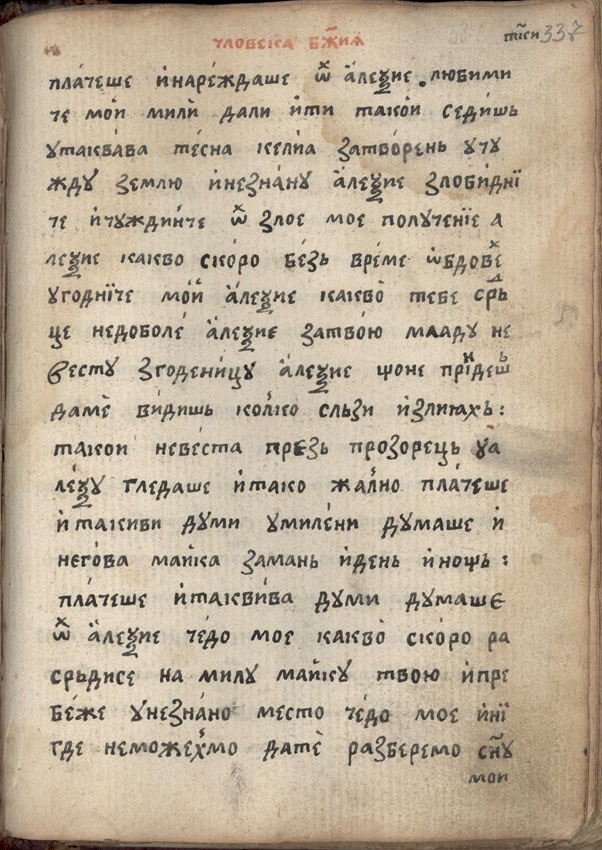 чловека бж҃їѧ
плачеше и́наре́ждаше ѿ а҆леѯие любими
че мо́й ми́лй дали и́ти такой седи́шь
утаква́ва те́сна келиа затво́рень учу
жду́ землю́ и́незна́ну а҆леѯие злоби́днї
че и́чужди́нче ѿ злое мое получе́нїе а
леѯие какво ско́ро бе́зь вре́ме ѡ҆бдовⷯе
уго́днїче мо́й а҆леѯие какво̀ тебе срⷣь
це недоболе́ а҆леѯие затво́ю младу не
весту згодени́цу а҆леѯие що́не прїи́дешь
дамѐ ви́дишь колⷦ҇ко сльзи и́злиꙗхь :
такои неве́ста презь прозо́рець уа
ле́ѯу гледаше и́тако жално плачеше
и́такиви думи умиле́ни ду́маше и́
него́ва ма́йка замань и́день и́ношь :
пла́чеше и́такви́ва думи думаше
ѿ а҆леѯие че́до мое какво̀ ско́ро ра
срьдисе на милу ма́йку твою и́пре
бе́же унезна́но место че́до мое и́нї
где неможе́хмо датѐ разберемо сн҃у
мои